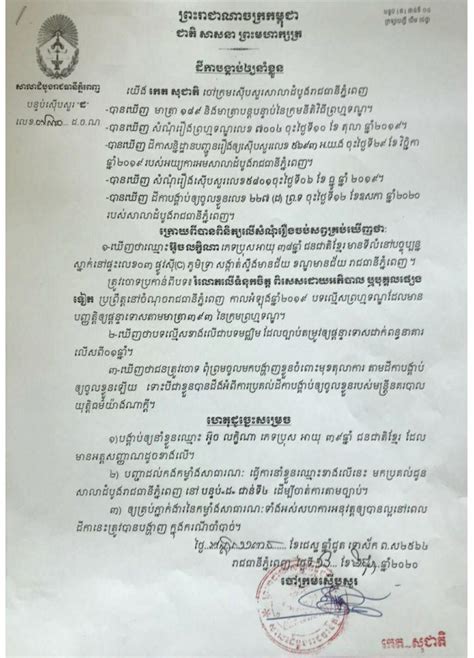 ព្រះរាជាណាចក្រកម្ពុជា
ជាតិ សាសនា ព្រះមហាក្សត្រ
សាលាដំបូងរាជធានីភ្នំពេញ
លេខ ដ.ខ.ណ
ដីកាបង្គាប់ឲ្យនាំខ្លួន
យើង កេត សុជាតិ ចៅក្រមស៊ើបសួរសាលាដំបូងរាជធានីភ្នំពេញ
-បានឃើញ មាត្រា ១៨៩ និងមាត្រាបន្តបន្ទាប់នៃក្រមនីតិវិធីព្រហ្មទណ្ឌ។
-បានឃើញ សំណុំរឿងព្រហ្មទណ្ឌលេខ ៧០០៤ ចុះថ្ងៃទី១០ ខែ តុលា ឆ្នាំ២០១៩។
-បានឃើញ ដីកាសន្និដ្ឋានបញ្ជូនរឿងឲ្យស៊ើបសួរលេខ ៥៦៩៣ អយ.ផង ចុះថ្ងៃទី២៩ ខែ វិច្ឆិកា
ឆ្នាំ២០១៩ របស់អយ្យការអមសាលាដំបូងរាជធានីភ្នំពេញ។
-បានឃើញ សំណុំរឿងស៊ើបសួរលេខ ៥៨០១ ចុះថ្ងៃទី០៦ ខែ ធ្នូ ឆ្នាំ ២០១៩។
-បានឃើញ ដីកាបង្គាប់ឲ្យចូលខ្លួនលេខ ២២៧ ចុះថ្ងៃទី១២ ខែឧសភា ឆ្នាំ២០២០
របស់សាលាដំបូងរាជធានីភ្នំពេញ។
ក្រោយពីបានពិនិត្យលើសំណុំរឿងចប់សព្វគ្រប់ឃើញថាៈ
១-ឃើញថាឈ្មោះ អ៊ូច លក្ខិណា ភេទប្រុស អាយុ ៣៨ឆ្នាំ ជនជាតិខ្មែរ មានទីលំនៅបច្ចុប្បន្ន
ស្នាក់នៅផ្ទះលេខ០៣ ផ្លូវស៊ី(C) ភូមិទ្រា សង្កាត់ស្ទឹងមានជ័យ ខណ្ឌមានជ័យ រាជធានីភ្នំពេញ ។
ត្រូវចោទប្រកាន់ពីបទៈ រំលោភលើទំនុកចិត្ត ពិសេសដោយអភិបាល ឬបុគ្គលផ្សេង
ទៀត ប្រព្រឹត្តនៅចំណុចរាជធានីភ្នំពេញ កាលអំឡុងឆ្នាំ២០១៩ បទល្មើសព្រហ្មទណ្ឌដែលមាន
បញ្ញត្តិឲ្យផ្តន្ទាទោសតាមមាត្រា៣៩៣ នៃក្រមព្រហ្មទណ្ឌ។
២-ឃើញថាបទល្មើសខាងលើជាបទមជ្ឈិម ដែលច្បាប់តម្រូវឲ្យផ្តន្ទាទោសដាក់ពន្ធនាគារ
លើសពី០១ឆ្នាំ។
៣-ឃើញថាជនត្រូវចោទ ពុំព្រមចូលមកបង្ហាញខ្លួនចំពោះមុខតុលាការ តាមដីកាបង្គាប់
ឲ្យចូលខ្លួនឡើយ ទោះបីជាខ្លួនបានដឹងអំពីការប្រគល់ដីកាបង្គាប់ឲ្យចូលខ្លួនរបស់មន្ត្រីនគរបាល
យុត្តិធម៌យ៉ាងណាក្តី។
ហេតុដូច្នេះសម្រេច
១)បង្គាប់ឲ្យនាំខ្លួនឈ្មោះ អ៊ូច លក្ខិណា ភេទប្រុស អាយុ ៣៨ឆ្នាំ ជនជាតិខ្មែរ ដែល
មានអត្តសញ្ញាណដូចខាងលើ។
២) បញ្ជាដល់កងកម្លាំងសាធារណៈ ធ្វើការនាំខ្លួនឈ្មោះខាងលើនេះ មកប្រគល់ជូន
សាលាដំបូងរាជធានីភ្នំពេញ នៅ ជាន់ទី៤ ដើម្បីចាត់ការតាមច្បាប់។
៣) ឲ្យគ្រប់ភ្នាក់ងារនៃកម្លាំងសាធារណៈទាំងអស់សហការអនុវត្តឲ្យបានល្អនៅពេល
ដីកានេះត្រូវបានបង្ហាញ ក្នុងករណីចាំបាច់។
ថ្ងៃ ខែជេស្ឋ ឆ្នាំជូត ទោស័ក ព.ស២៥៦៤
រាជធានីភ្នំពេញ, ថ្ងៃទី ខែ ឆ្នាំ២០២០
ចៅក្រមស៊ើបសួរ
កេត សុជាតិ